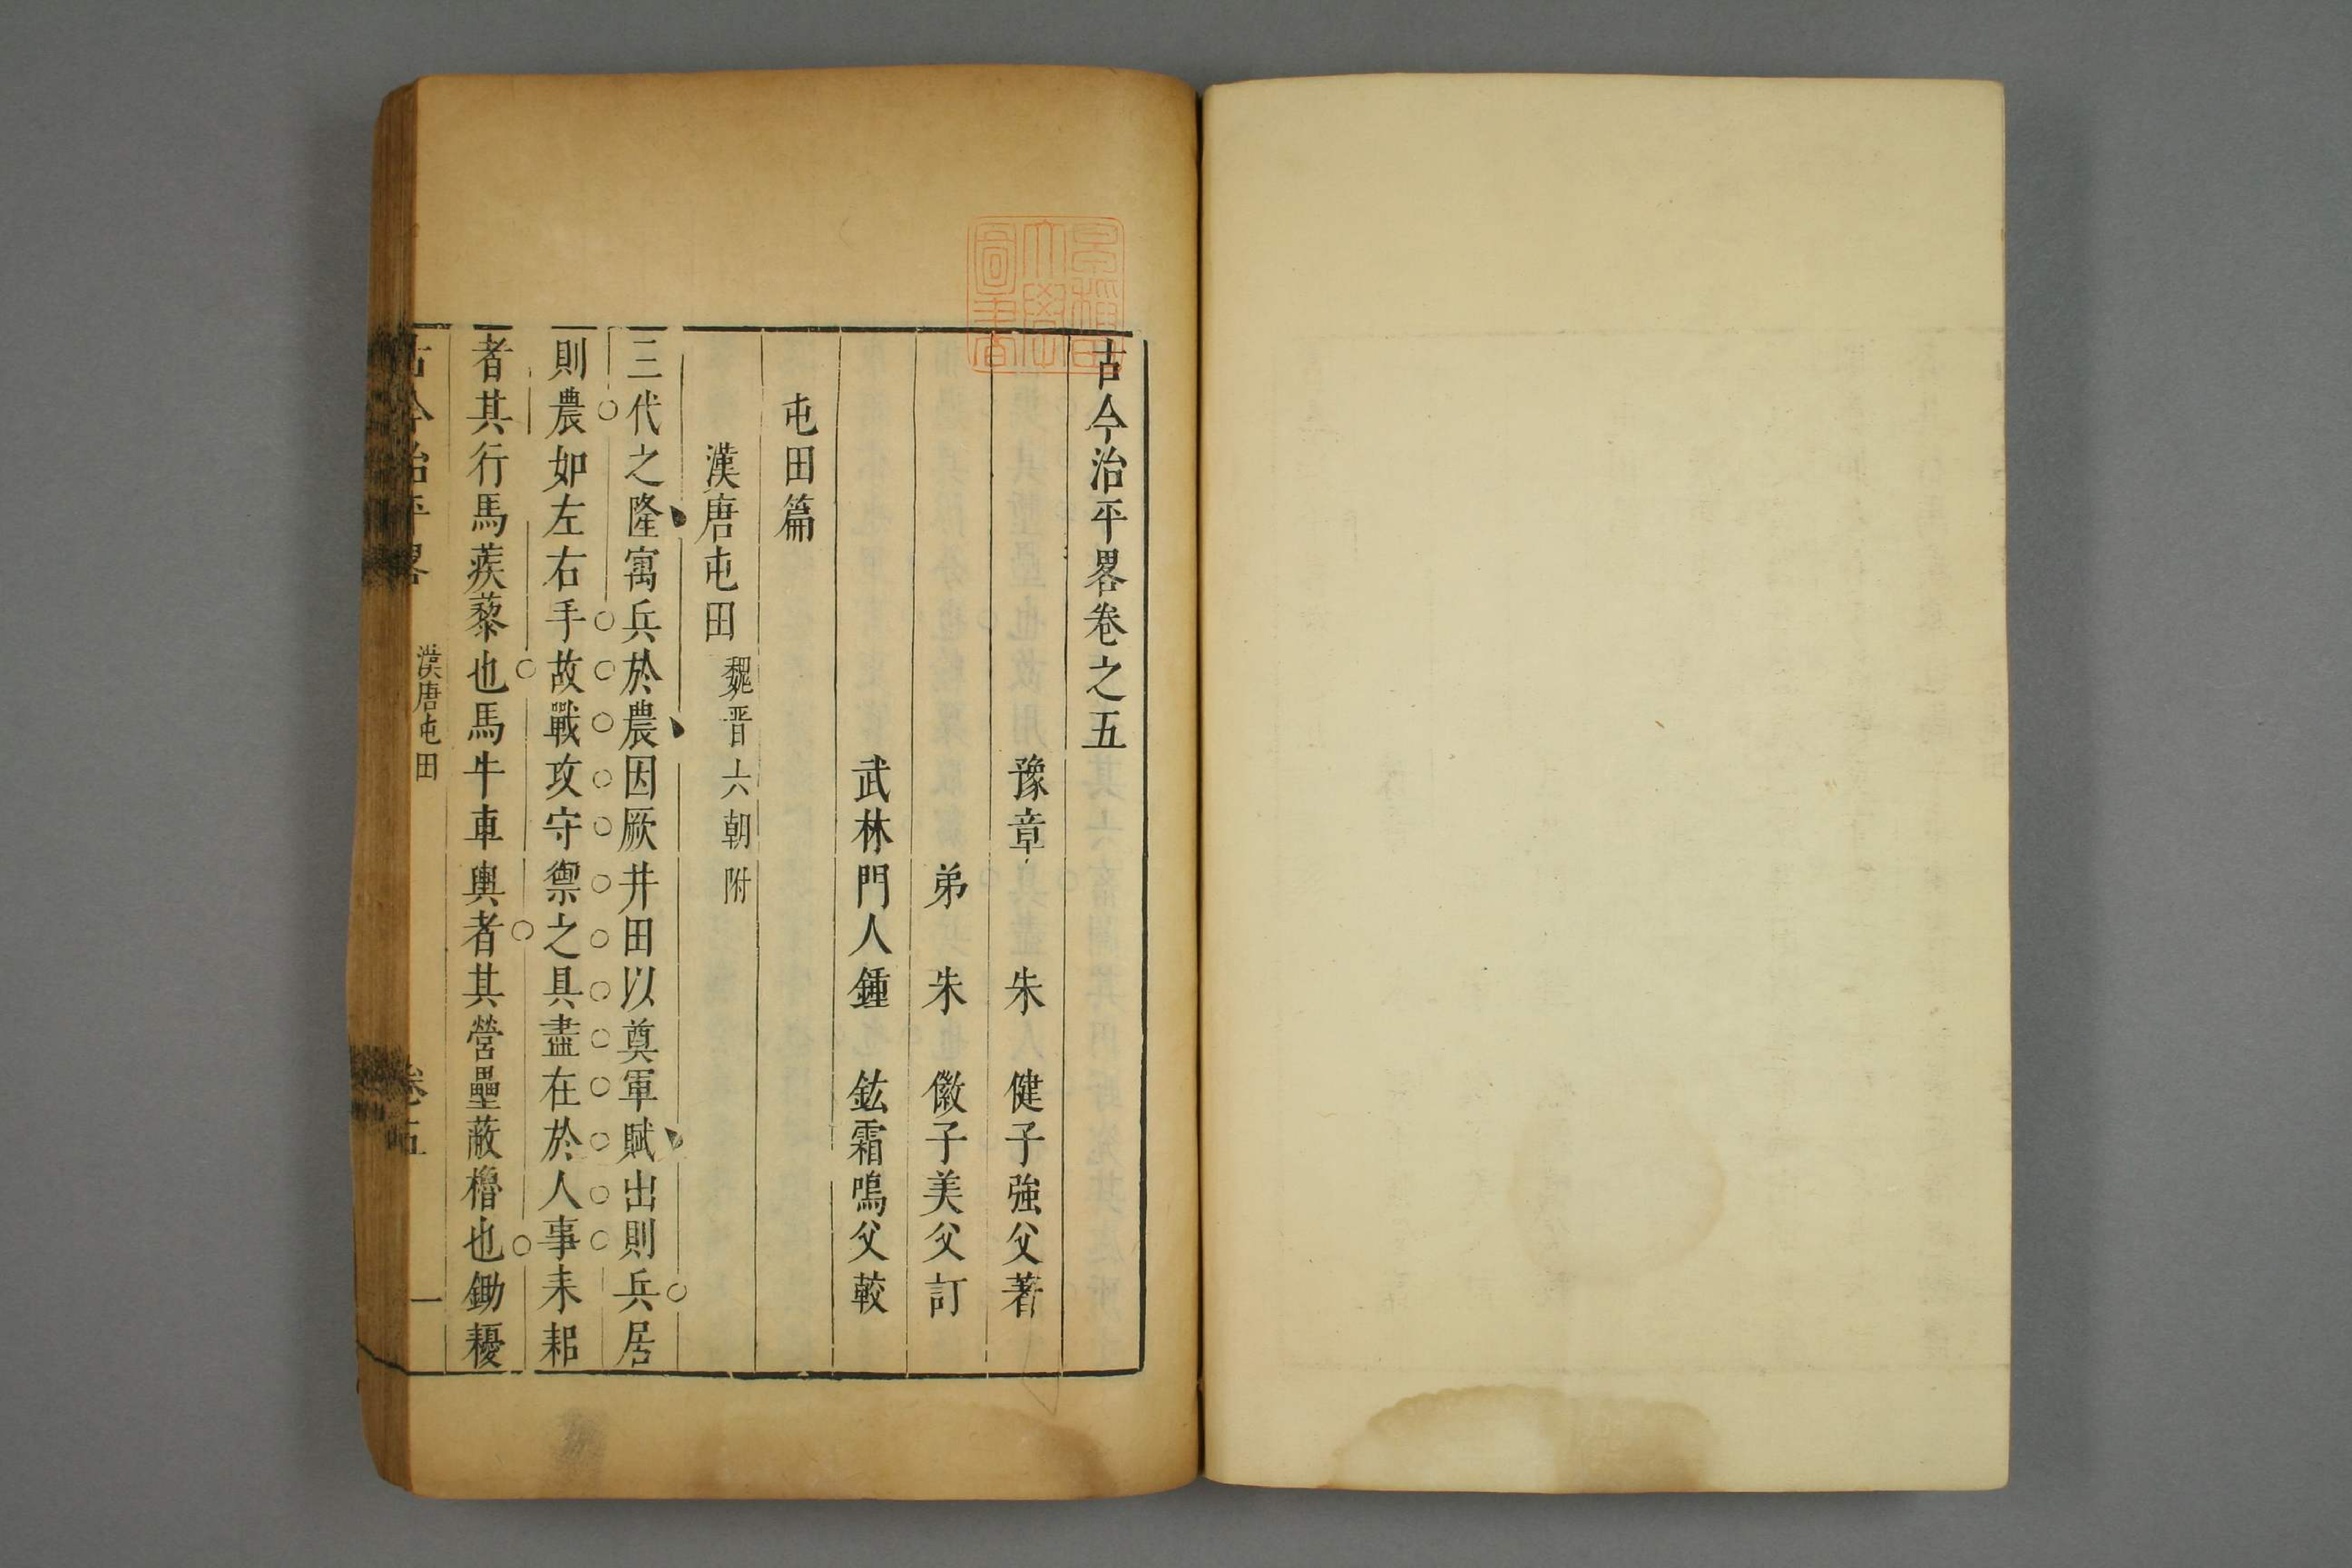 古今治平畧卷之五
豫章 朱 健子強父著
弟 朱 徽子美父訂
武林門人鍾 鈜霜鳴父較
屯田篇
漢唐屯田 魏晋六朝附
三代之隆寓兵於農因厥井田以奠軍賦出則兵居
則農如左右手故戰攻守禦之具盡在於人事耒耜
者其行馬蒺藜也馬牛車輿者其營壘蔽櫓也鋤耰
古今治平畧 漢唐屯田 卷五 一
早稲田大學圖書